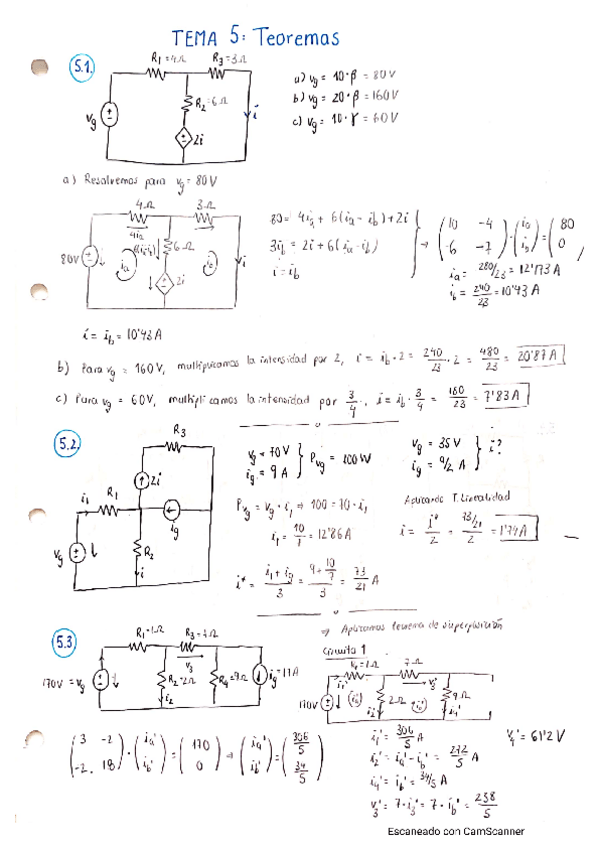 TEMA 5: Teoremas
5.1.
R₁=4Ω
R₃=3Ω
R₂=6Ω
2i
i
vg
a) vg = 10·β = 80V
b) vg = 20·β = 160V
c) vg = 10·γ = 60V
a) Resolvemos para vg = 80V
4Ω
3Ω
6Ω
80V
ia
ib
2i
i
80 = 4ia + 6(ia - ib) + 2i
3ib = 2i + 6(ia - ib)
i = ib
(10 -4
-6 -7) · (ia
ib) = (80
0)
ia = 280/23 = 12'173 A
ib = 240/23 = 10'43 A
i = ib = 10'43 A
b) Para vg = 160V, multiplicamos la intensidad por 2, i = ib · 2 = 240/23 · 2 = 480/23 = 20'87 A
c) Para vg = 60V, multiplicamos la intensidad por 3/4, i = ib · 3/4 = 180/23 = 7'83 A
5.2.
R₃
2i
i₁
R₁
ig
vg
R₂
i
vg = 70V
ig = 9 A
Pvg = 100W
vg = 35V
ig = 9/2 A
i?
Pvg = vg · i₁ ⇒ 100 = 70 · i₁
i₁ = 10/7 = 12'86A
i* = (i₁ + ig)/3 = (9 + 10/7)/3 = 73/21 A
Aplicando T. Linealidad
i = i*/2 = (73/21)/2 = 1'74 A
5.3
R₁=1Ω
R₃=7Ω
v₃
170V = vg
R₂=2Ω
i₂
R₄=9Ω
ig=17A
⇒ Aplicamos teorema de superposición
Circuito 1
R₁=1Ω
7Ω
i₁'
v₃'
170V
2Ω
9Ω
i₂'
i₄'
(3 -2
-2 18) · (ia'
ib') = (170
0) → (ia'
ib') = (306/5
34/5)
i₁' = 306/5 A
i₂' = ia' - ib' = 272/5 A
i₄' = ib' = 34/5 A
v₃' = 7·i₃' = 7·ib' = 238/5
v₄' = 61'2 V
Escaneado con CamScanner